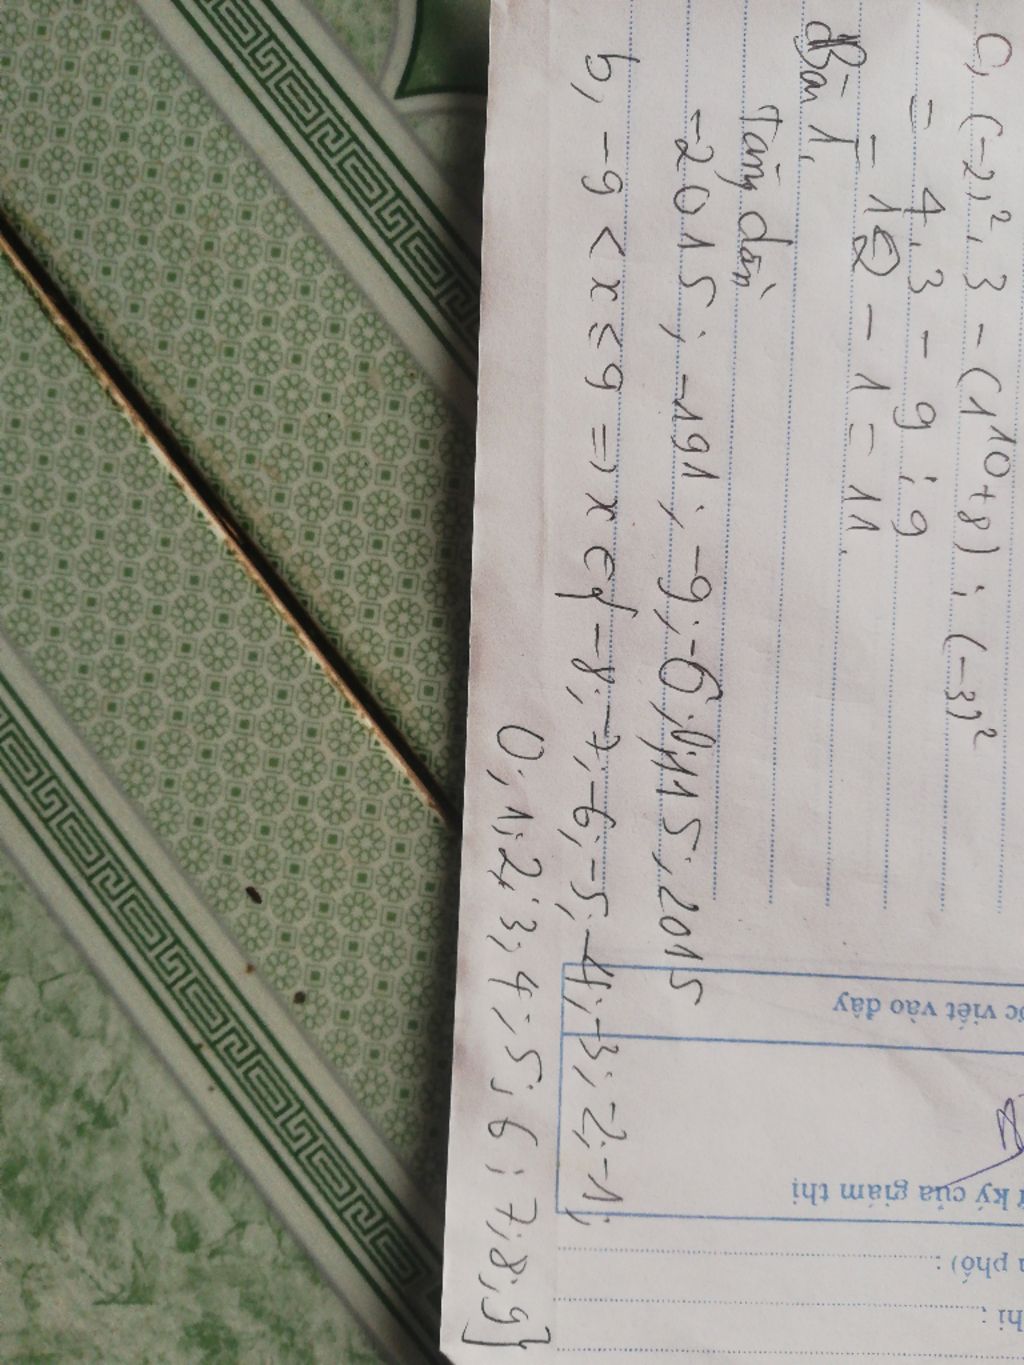 c, (-2)².3 - (1¹⁰+8) : (-3)²
= 4.3 - 9 : 9
= 12 - 1 = 11.
Bài 1.
Tăng dần
-2015; -191; -9; -6; 0; 15; 2015
b, -9 < x ≤ 9 => x ∈ { -8; -7; -6; -5; -4; -3; -2; -1;
0; 1; 2; 3; 4; 5; 6; 7; 8; 9}
viết vào đây
ký của giám thị
phố) :